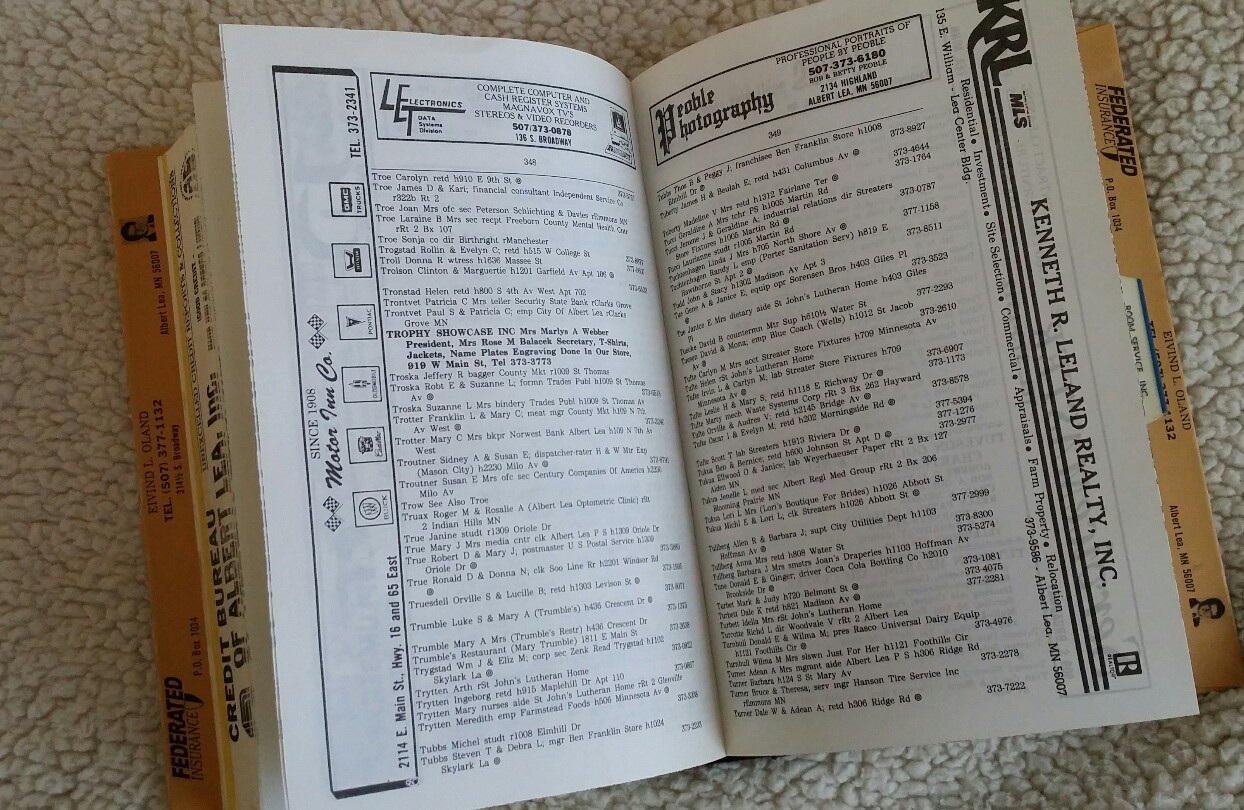 FEDERATED
INSURANCE
P.O. Box 1034
EIVIND L. OLAND
TEL. (507) 377-1132
214½ S. Broadway
Albert Lea, MN 56007
CREDIT BUREAU
OF ALBERT LEA, INC.
TEL. 373-2341
GMC
TRUCKS
PONTIAC
Cadillac
BUICK
SINCE 1908
Motor Inn Co.
2114 E. Main St., Hwy. 16 and 65 East
LET
ELECTRONICS
DATA
Systems
Division
COMPLETE COMPUTER AND
CASH REGISTER SYSTEMS
MAGNAVOX TV'S
STEREOS & VIDEO RECORDERS
507/373-0878
136 S. BROADWAY
348
Troe Carolyn retd h910 E 9th St
Troe James D & Kari; financial consultant Independent Service Co
r322b Rt 2
Troe Joan Mrs ofc sec Peterson Schlichting & Davies rEmmons MN
Troe Laraine B Mrs sec recpt Freeborn County Mental Health Cntr
rRt 2 Bx 107
Troe Sonja co dir Birthright rManchester
Trogstad Rollin & Evelyn C; retd h515 W College St
Troll Donna R wtress h1636 Massee St
Trolson Clinton & Marguertie h1201 Garfield Av Apt 106
Tronstad Helen retd h800 S 4th Av West Apt 702
Trontvet Patricia C Mrs teller Security State Bank rClarks Grove
Trontvet Paul S & Patricia C; emp City Of Albert Lea rClarks
Grove MN
TROPHY SHOWCASE INC Mrs Marlys A Webber
President, Mrs Rose M Balacek Secretary, T-Shirts,
Jackets, Name Plates Engraving Done In Our Store,
919 W Main St, Tel 373-3773
Troska Jeffery R bagger County Mkt r1009 St Thomas
Troska Robt E & Suzanne L; formn Trades Publ h1009 St Thomas
Av
Troska Suzanne L Mrs bindery Trades Publ h1009 St Thomas Av
Trotter Franklin L & Mary C; meat mgr County Mkt h109 N 7th
Av West
Trotter Mary C Mrs bkpr Norwest Bank Albert Lea h109 N 7th Av
West
Troutner Sidney A & Susan E; dispatcher-rater H & W Mtr Exp
(Mason City) h2230 Milo Av
Troutner Susan E Mrs ofc sec Century Companies Of America h2230
Milo Av
Trow See Also Troe
Truax Roger M & Rosalie A (Albert Lea Optometric Clinic) rRt
2 Indian Hills MN
True Janine studt r1309 Oriole Dr
True Mary J Mrs media cntr clk Albert Lea P S h1309 Oriole Dr
True Robert D & Mary J, postmaster U S Postal Service h1309
Oriole Dr
True Ronald D & Donna N; clk Soo Line Rr h2201 Windsor Rd
Truesdell Orville S & Lucille B; retd h1303 Levison St
Trumble Luke S & Mary A (Trumble's) h436 Crescent Dr
Trumble Mary A Mrs (Trumble's Restr) h436 Crescent Dr
Trumble's Restaurant (Mary Trumble) 1811 E Main St
Trygstad Wm J & Eliz M; corp sec Zenk Read Trygstad h1102
Skylark La
Trytten Arth rSt John's Lutheran Home
Trytten Ingeborg retd h915 Maplehill Dr Apt 110
Trytten Mary nurses aide St John's Lutheran Home rRt 2 Glenville
Trytten Meredith emp Farmstead Foods h506 Minnesota Av
Tubbs Michel studt r1008 Elmhill Dr
Tubbs Steven T & Debra L; mgr Ben Franklin Store h1024
Skylark La
Peoble
Photography
PROFESSIONAL PORTRAITS OF
PEOPLE BY PEOBLE
507-373-6180
BOB & BETTY PEOBLE
2134 HIGHLAND
ALBERT LEA, MN 56007
349
Thoe B & Peggy J, franchisee Ben Franklin Store h1008
Elmhill Dr 373-8927
Tuberty James H & Beulah E; retd h431 Columbus Av 373-4644
373-1764
Tuberty Madeline V Mrs retd h1312 Fairlane Ter
Geraldine A Mrs tchr PS h1005 Martin Rd
Jerome J & Geraldine A; industrial relations dir Streater
Store Fixtures h1005 Martin Rd 373-0787
Laurianne studt r1005 Martin Rd
Linda J Mrs h705 North Shore Av 377-1158
Randy L emp (Porter Sanitation Serv) h819 E
Hawthorne St Apt 2 373-8511
Tudd John & Stacy h1302 Madison Av Apt 3
Tue Gene A & Janice E; equip opr Sorensen Bros h403 Giles Pl
373-3523
Tue Janice E Mrs dietary aide St John's Lutheran Home h403 Giles
Pl
David B countermn Mtr Sup h610½ Water St 377-2293
David & Mona; emp Blue Coach (Wells) h1012 St Jacob
Av 373-2610
Tufte Carlyn M Mrs acct Streater Store Fixtures h709 Minnesota Av
Tufte Helen rSt John's Lutheran Home
Tufte Irvin L & Carlyn M; lab Streater Store Fixtures h709
Minnesota Av 373-6907
Tufte Leslie H & Mary S; retd h1118 E Richway Dr 373-1173
Tufte Marty mech Waste Systems Corp rRt 3 Bx 262 Hayward
Tufte Orville & Audres V; retd h2145 Bridge Av 373-8578
Tufte Oscar I & Evelyn M; retd h202 Morningside Rd
Tufte Scott T lab Streaters h1913 Riviera Dr 377-5394
Tukua Ben & Bernice; retd h600 Johnson St Apt D 377-1276
Tukua Ellwood O & Janice; lab Weyerhaeuser Paper rRt 2 Bx 127
Alden MN 373-2977
Tukua Jenelle L med sec Albert Regl Med Group rRt 2 Bx 206
Blooming Prairie MN
Tukua Lori L Mrs (Lori's Boutique For Brides) h1026 Abbott St
Tukua Michl E & Lori L, clk Streaters h1026 Abbott St
377-2999
Tullberg Allen R & Barbara J; supt City Utilities Dept h1103
Hoffman Av 373-8300
Tullberg Anna Mrs retd h808 Water St 373-5274
Tullberg Barbara J Mrs smstrs Joan's Draperies h1103 Hoffman Av
Tune Donald E & Ginger, driver Coca Cola Bottling Co h2010
Brookside Dr 373-1081
Turbet Mark & Judy h720 Belmont St 373-4075
Dale K retd h821 Madison Av 377-2281
Turbett Idella Mrs rSt John's Lutheran Home
Turcotte Richd L dir Woodvale V rRt 2 Albert Lea
Turnbull Donald E & Wilma M; pres Rasco Universal Dairy Equip
h1121 Foothills Cir 373-4976
Turnbull Wilma M Mrs slswn Just For Her h1121 Foothills Cir
Turner Adean A Mrs mgmnt aide Albert Lea P S h306 Ridge Rd
Turner Barbara h124 S St Mary Av 373-2278
Turner Bruce & Theresa; serv mgr Hanson Tire Service Inc
rEmmons MN
Turner Dale W & Adean A; retd h306 Ridge Rd 373-7222
KRL
MLS
135 E. William - Lea Center Bldg.
Residential • Investment • Site Selection • Commercial • Appraisals • Farm Property • Relocation
373-9586 - Albert Lea, MN 56007
KENNETH R. LELAND REALTY, INC.
REALTOR
FEDERATED
INSURANCE
P.O. Box 1034
ROOM SERVICE INC.
EIVIND L. OLAND
Albert Lea, MN 56007